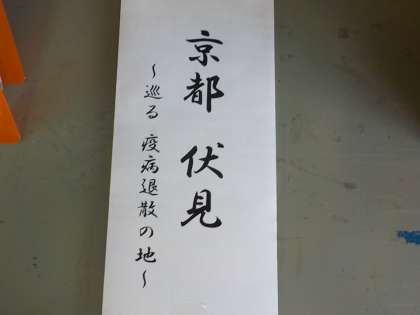 京都 伏見
～巡る 疫病退散の地～